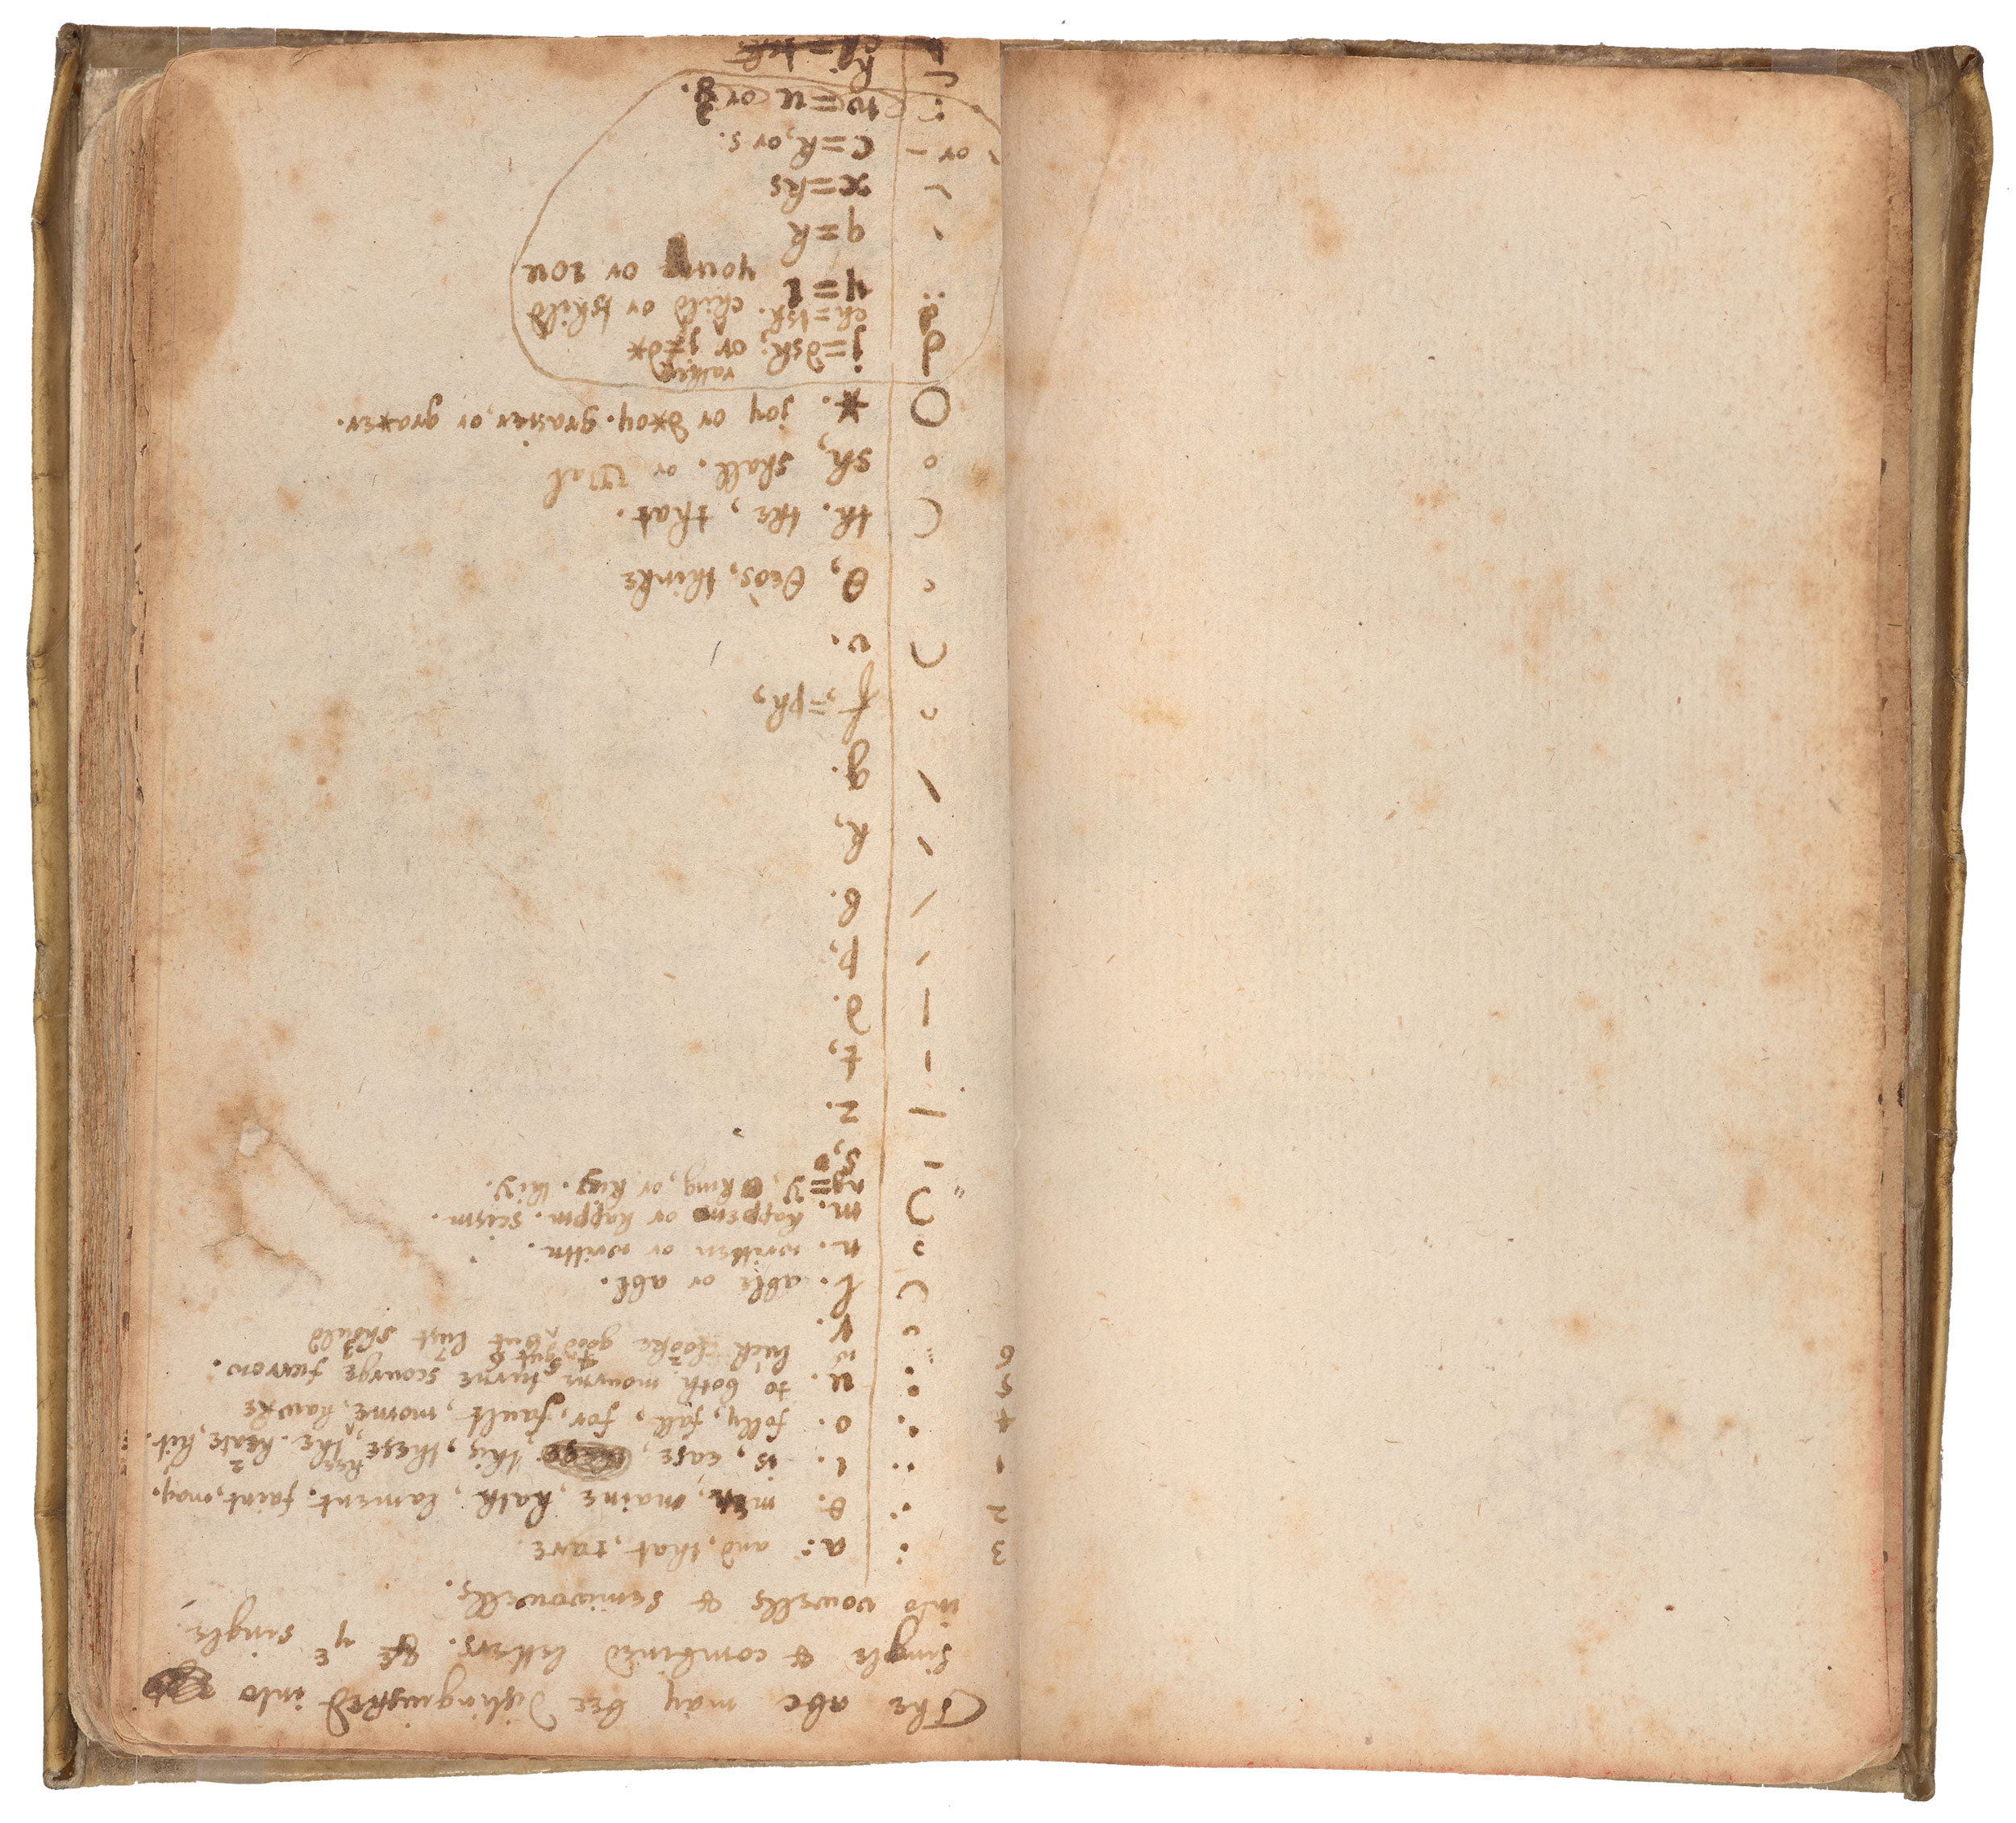 The abc may bee distinguished into
single & combined letters. & yᵉ single
into vowells & semivowells.
3 a: and, that, tare.
2 e. men, maine, hath, lament, faint, may.
1 i. is, ease, this, these, thee, the. heate, hit.
4 o. folly, fall, for, fault, morne, hawke
5 u. to both mourne turne scourge furrow.
6 w luck tooke good but lust should
r.
l. able or abl.
n. written or writtn.
m. happen or happm. scism.
ng=y, king, or kiy. thiy.
s,
z.
t,
d.
p,
b.
k,
g.
f,=ph,
v.
θ, θεὸς, thinke
th. the, that.
sh, shall. or
*. joy or d*oy. grasier, or gra*er.
rather
j=dsh; or j=d*
ch=tsh. child or tshild
y=i your or iou
q=k
x=ks
or c=k, or s.
w=u or g.